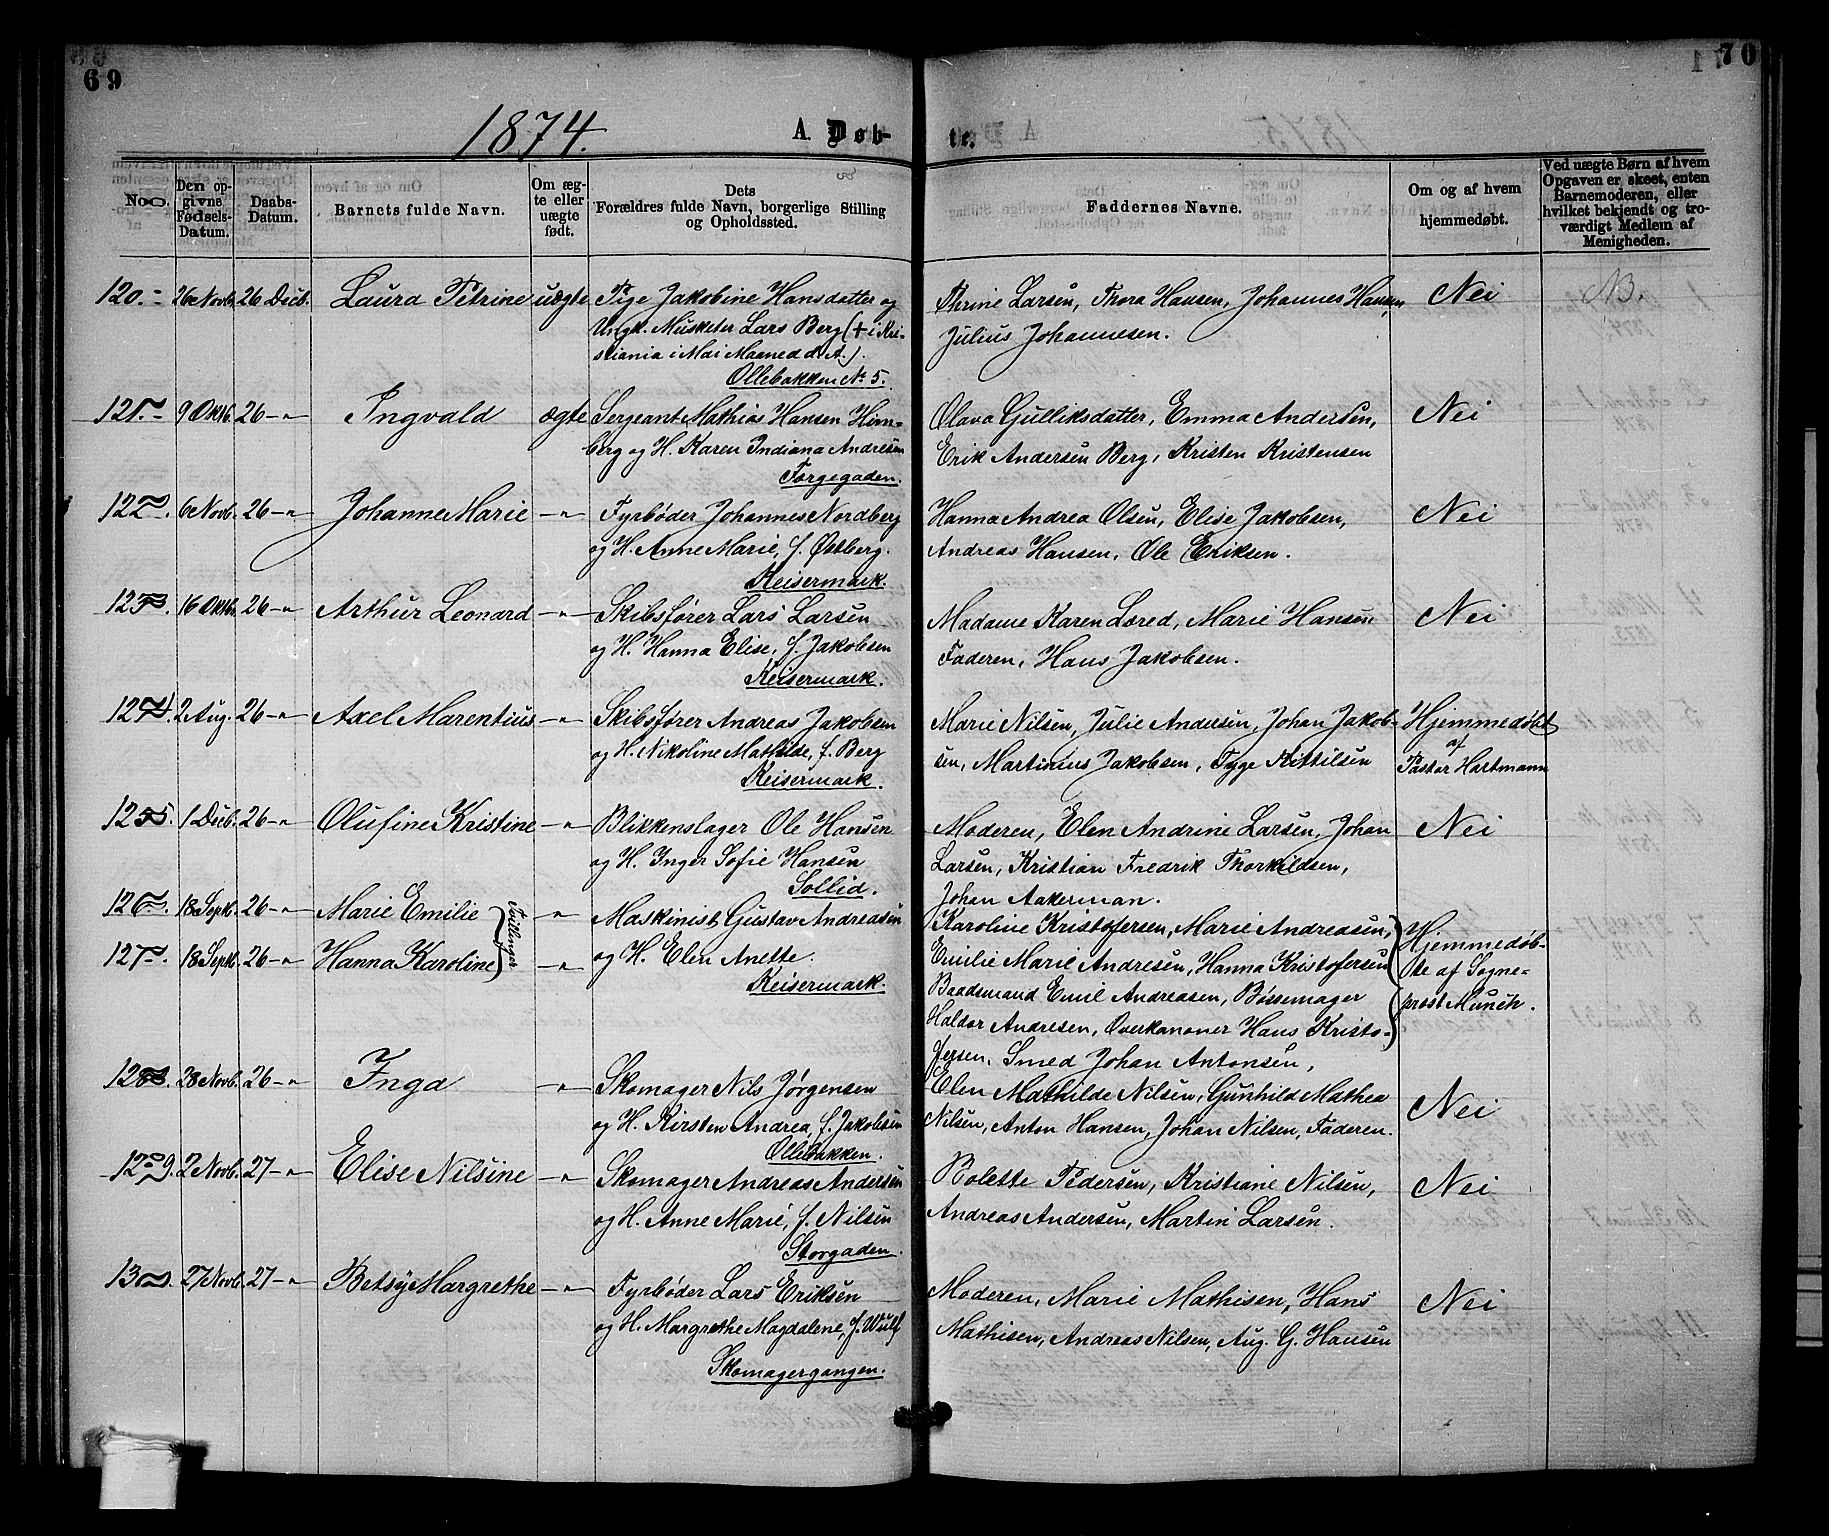 69
70
1874.
A. Døb-
te.
No.
Den op-
givne
Fødsels-
Datum.
Daabs-
Datum.
Barnets fulde Navn.
Om æg-
te eller
uægte
født.
Dets
Forældres fulde Navn, borgerlige Stilling
og Opholdssted.
Faddernes Navne.
Om og af hvem
hjemmedøbt.
Ved uægte Børn af hvem
Opgaven er skeet, enten
Barnemoderen, eller
hvilket bekjendt og tro-
værdigt Medlem af
Menigheden.
120. 26 Novb. 26 Decb. Laura Petrine uægte Pige Jakobine Hansdatter og
Ungk. Musketer Lars Berg (+ i Kri-
stiania i Mai Maaned d. A.).
Ollebakken No 5.
Thrine Larsen, Thora Hansen, Johannes Hansen,
Julius Johannesen.
Nei
NB.
121. 9 Oktb. 26 -"- Ingvald ægte Sergeant Mathias Hansen Him-
berg og H. Karen Indiana Andresen
Fargegaden.
Olava Gulliksdatter, Emma Andersen,
Erik Andersen Berg, Kristen Kristensen
Nei
122. 6 Novb. 26 -"- Johanne Marie -"- Fyrbøder Johannes Nordberg
og H. Anne Marie, f. Østberg.
Keisermark.
Hanna Andrea Olsen, Elise Jakobsen,
Andreas Hansen, Ole Eriksen.
Nei
123. 16 Oktb. 26 -"- Arthur Leonard -"- Skibsfører Lars Larsen
og H. Hanna Elise, f. Jakobsen
Keisermark.
Madame Karen Læred, Marie Hansen
Faderen, Hans Jakobsen.
Nei
124. 2 Aug. 26 -"- Axel Marentius -"- Skibsfører Andreas Jakobsen
og H. Nikoline Mathilde, f. Berg
Keisermark.
Marie Nilsen, Julie Andersen, Johan Jakob-
sen, Martinius Jakobsen, Tyge Kittilsen
Hjemmedøbt
af
Pastor Hartmann
125. 1 Decb. 26 -"- Olufine Kristine -"- Blikkenslager Ole Hansen
og H. Inger Sofie Hansen
Sollid.
Moderen, Elen Andrine Larsen, Johan
Larsen, Kristian Fredrik Thorkildsen,
Johan Aakerman.
Nei
126. 18 Septb. 26 -"- Marie Emilie -"- Maskinist Gustav Andreasen
127. 18 Septb. 26 -"- Hanna Karoline -"- og H. Elen Anette.
Tvillinger
Keisermark.
Karoline Kristoffersen, Marie Andreasen,
Emilie Marie Andresen, Hanna Kristoffersen
Baadsmand Emil Andreasen, Bøssemager
Haldor Andresen, Overkanoner Hans Kristo-
fersen, Smed Johan Antonsen,
Hjemmedøb-
te af Sogne-
prest Munch.
128. 28 Novb. 26 -"- Inga -"- Skomager Nils Jørgensen
og H. Kirsten Andrea, f. Jakobsen
Ollebakken.
Elen Mathilde Nilsen, Gunhild Mathea
Nilsen, Anton Hansen, Johan Nilsen, Faderen.
Nei
129. 2 Novb. 27 -"- Elise Nilsine -"- Skomager Andreas Andersen
og H. Anne Marie, f. Nilsen
Storgaden.
Bolette Pedersen, Kristiane Nilsen,
Andreas Andersen, Martin Larsen.
Nei
130. 27 Novb. 27 -"- Betsy Margrethe -"- Fyrbøder Lars Eriksen
og H. Margrethe Magdalene, f. Wulf
Skomagergangen.
Moderen, Marie Mathisen, Hans
Mathisen, Andreas Nilsen, Aug. G. Hansen
Nei